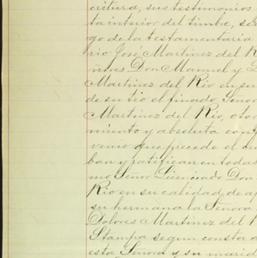 critura, sus testimonios
ta interior del timbre, se
go de la testamentaria
rio José Martinez del R
nias Don Manuel y D
Martinez del Rio en su
de su tio el finado, Seno
Martinez del Rio, otor
miento y absoluta conf
venio que precede el cu
ban y ratifican en todas
mo Señor Licenciado Don
Rio en su calidad de ap
su hermana la Señora
Dolores Martinez del R
Stampa segun consta d
esta Señora y su marid